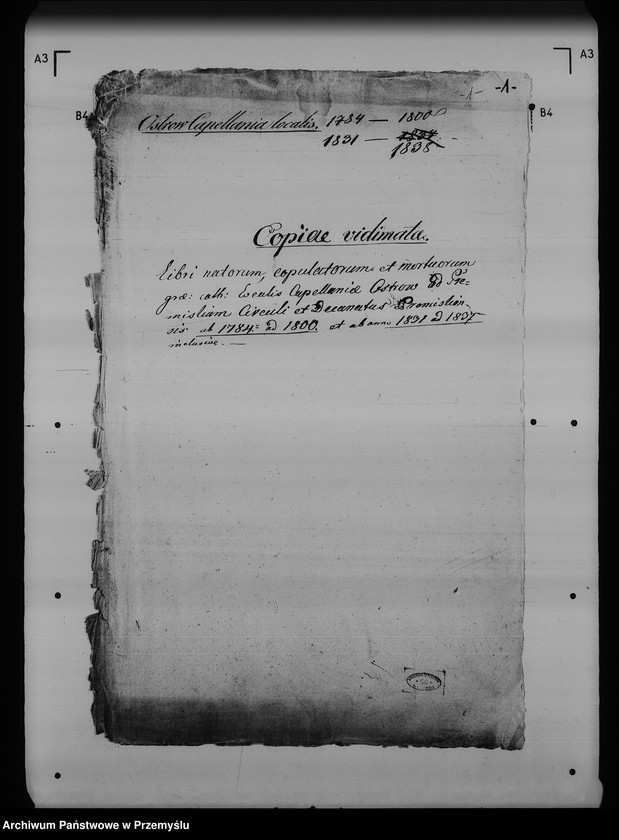 A3
A3
B4
B4
-1-
-1-
Ostrow Capellania localis. 1784 — 1800
1831 — 1837
1838
Copiae vidimata.
Libri natorum, copulatorum et mortuorum
græ: cath: Ecclis Capellaniæ Ostrow ad Pre=
misliam Circuli et Decanatus Premislien-
sis ab 1784= ad 1800. et ab anno 1831 ad 1837
inclusive. —
Archiwum Państwowe w Przemyślu